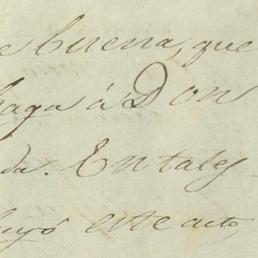 e buena, que
haga á Don
da. En tales
luyó este acto,